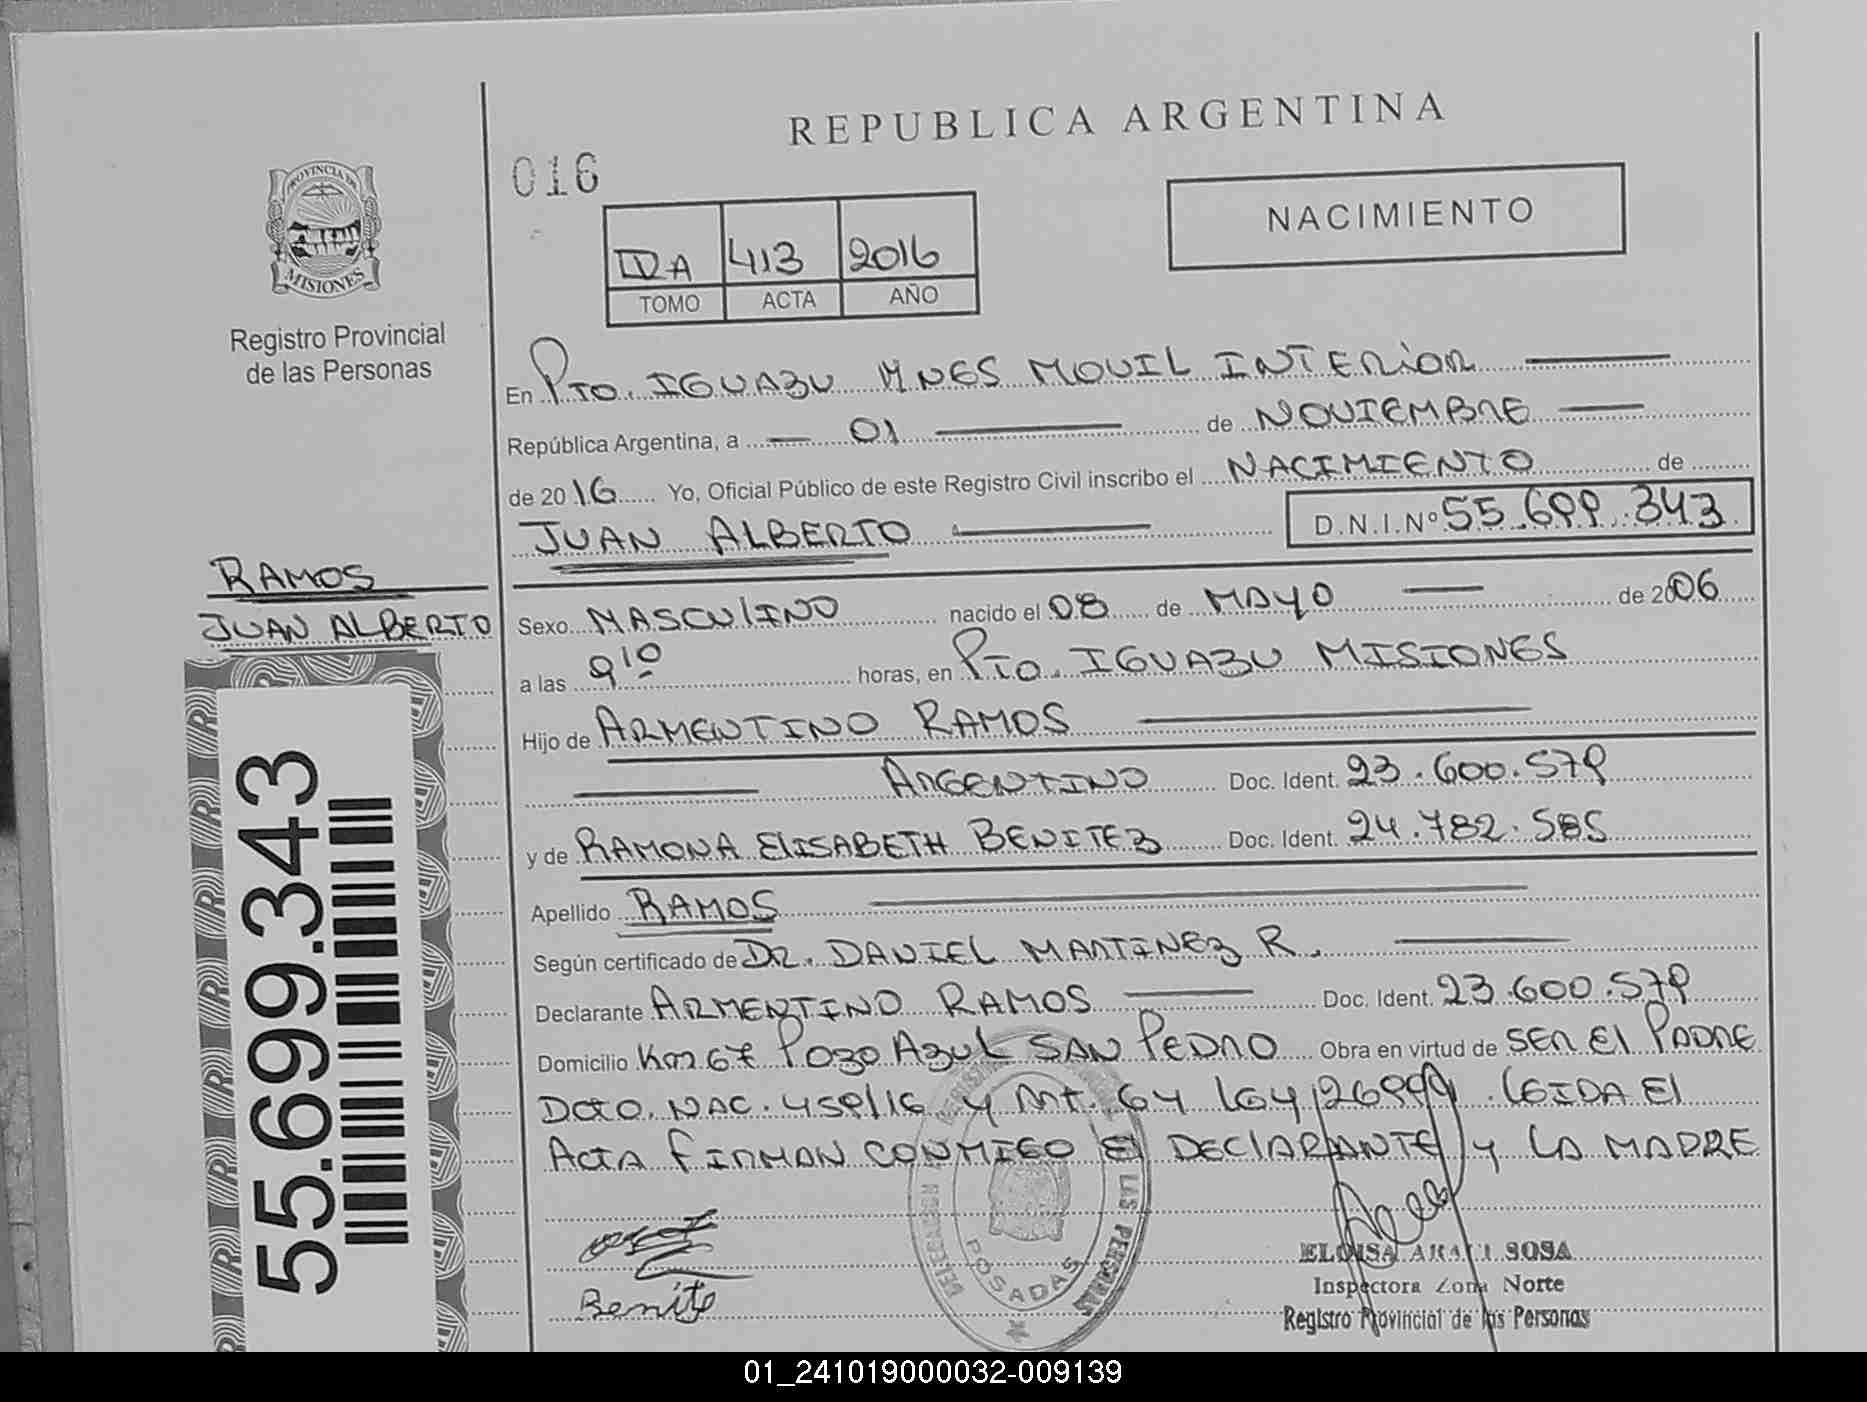 REPUBLICA ARGENTINA
016
NACIMIENTO
PROVINCIA DE
MISIONES
Registro Provincial
de las Personas
IDA 413 2016
TOMO ACTA AÑO
En Pto. IGUAZU MNES MOVIL INTERIOR
República Argentina, a 01 de NOVIEMBRE
de 2016 Yo, Oficial Público de este Registro Civil inscribo el NACIMIENTO de
JUAN ALBERTO D.N.I.Nº 55.699.343
RAMOS
JUAN ALBERTO
Sexo MASCULINO nacido el 08 de MAYO de 2006
a las 9 10 horas, en Pto. IGUAZU MISIONES
Hijo de ARMENTINO RAMOS
ARGENTINO Doc. Ident. 23.600.579
y de RAMONA ELISABETH BENITEZ Doc. Ident. 24.782.585
Apellido RAMOS
Según certificado de DR. DANIEL MARTINEZ R.
Declarante ARMENTINO RAMOS Doc. Ident. 23.600.579
Domicilio Km 67 Pozo Azul SAN PEDRO Obra en virtud de SER El PADRE
Dcto. NAC. 459/16 y Mt. 64 164126999. LEIDA El
ACTA FIRMAN CONMIGO El DECLARANTE y LA MADRE
Benite
DELEGACION LAS PERSONAS
POSADAS
ELOISA ARACI SOSA
Inspectora Zona Norte
Registro Provincial de las Personas
55.699.343
01_241019000032-009139